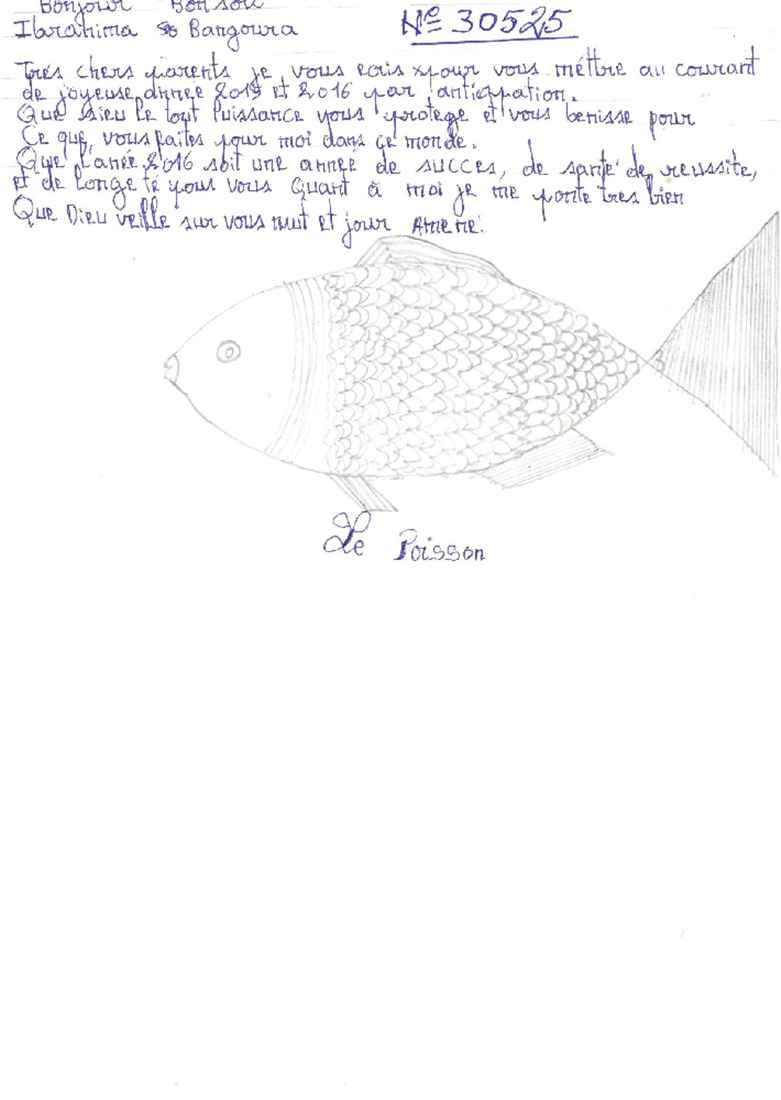 Bonjour Bonsoir
Ibrahima Bangoura
N° 30525
Très chers parents je vous ecris pour vous méttre au courant
de joyeuse année 2015 et 2016 par anticipation.
Que Dieu le tout Puissance vous protege et vous benisse pour
Ce que vous faites pour moi dans ce monde.
Que l'anée 2016 soit une année de succes, de santé de reussite,
et de longe té pour vous Quant à moi je me porte tres bien
Que Dieu veille sur vous nuit et jour Amene.
Le Poisson